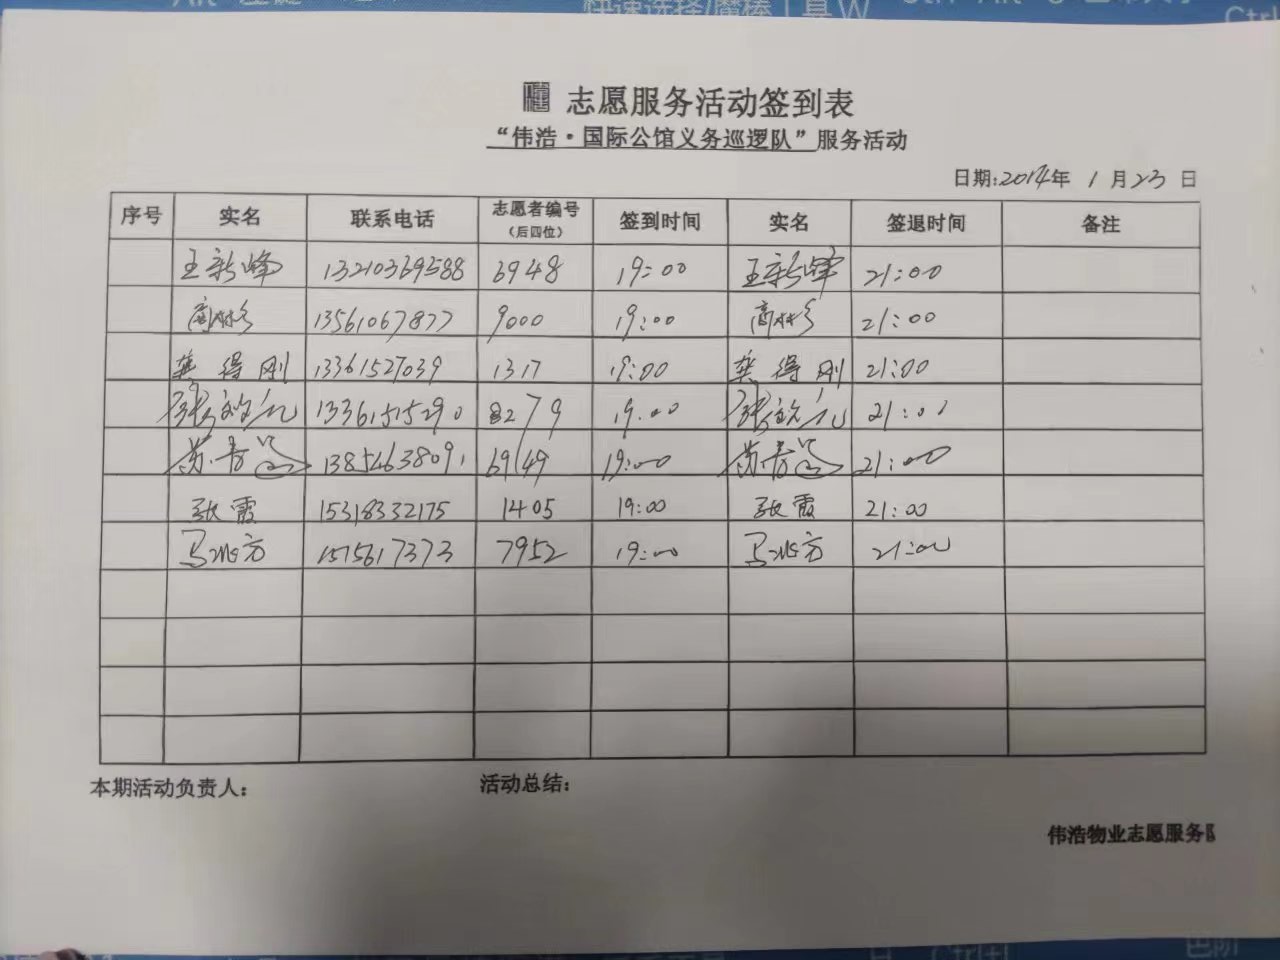 快速选择/魔棒工具W
Ctrl
志愿服务活动签到表
“伟浩·国际公馆义务巡逻队”服务活动
日期:2014年 1 月23 日
序号 实名 联系电话 志愿者编号(后四位) 签到时间 实名 签退时间 备注
王新峰 13210369588 6948 19:00 王新峰 21:00
13561067877 9000 19:00 21:00
龚得刚 13361527039 1317 19:00 龚得刚 21:00
13361515290 8279 19:00 21:00
19:00 21:00
张霞 15318332175 1405 19:00 张霞 21:00
7952 19:00 21:00
本期活动负责人: 活动总结:
伟浩物业志愿服务队
色阶